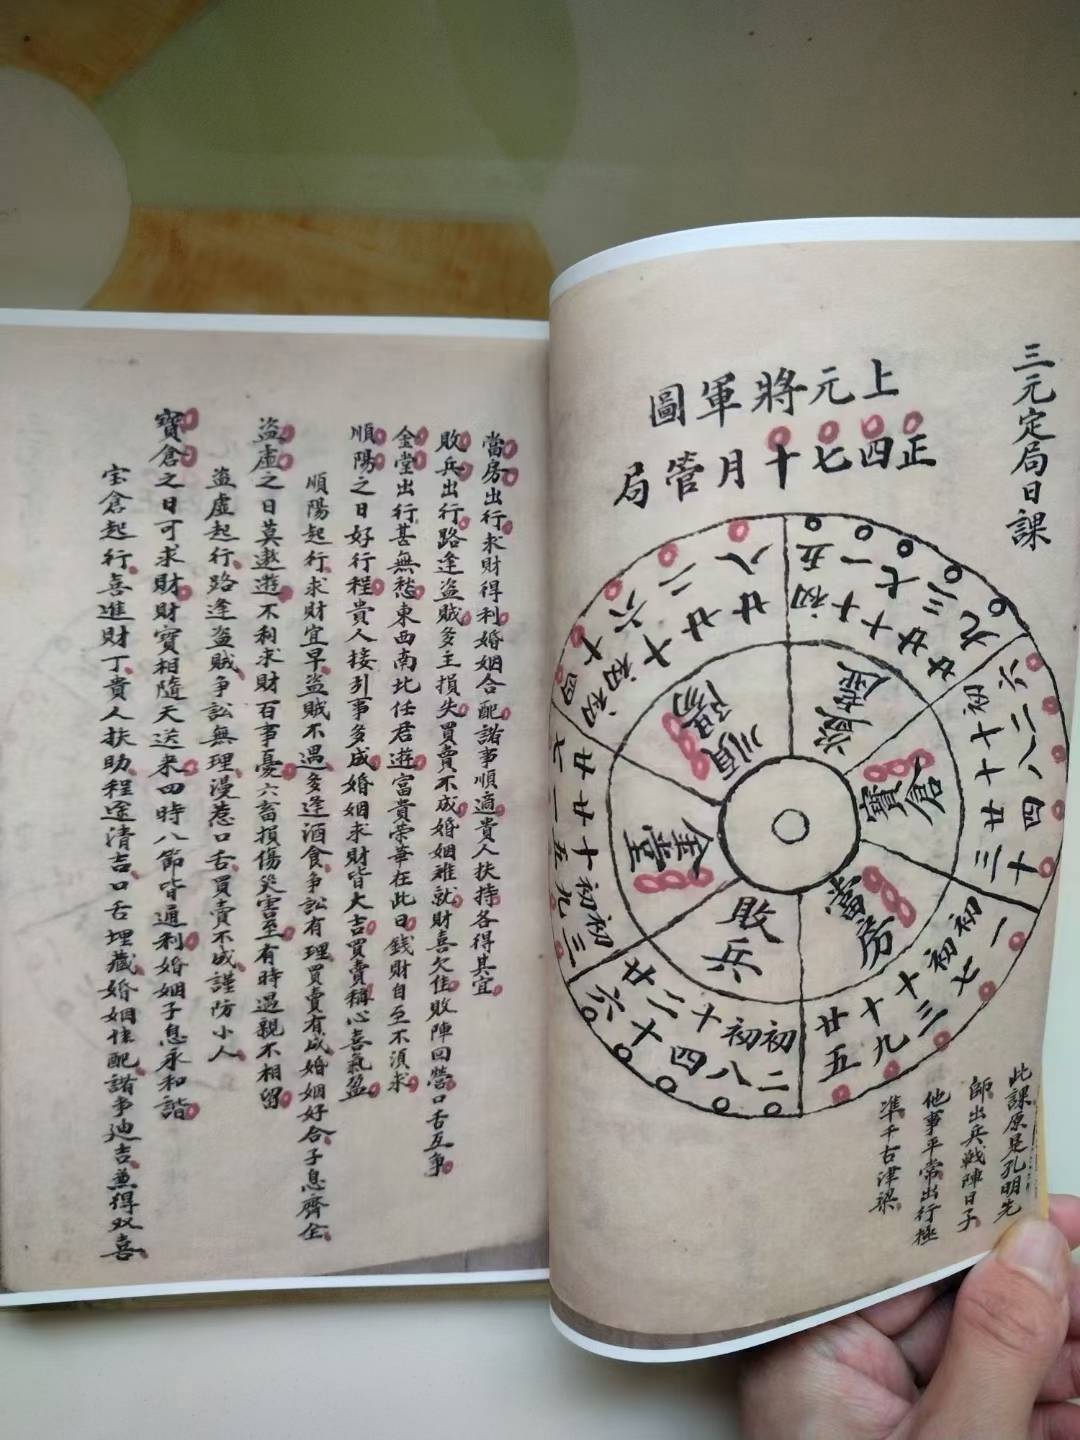 三元定局日課
上元將軍圖
正四七十月管局
初五
十一
十七
廿三
廿九
初六
十二
十八
廿四
三十
初一
初七
十三
十九
廿五
初二
初八
十四
二十
廿六
初三
初九
十五
廿一
廿七
初四
初十
十六
廿二
廿八
盜虛
寶倉
當房
敗兵
金堂
順陽
此課原是孔明先
師出兵戰陣日子
他事平常出行極
準千古津梁
當房出行求財得利婚姻合配諸事順適貴人扶持各得其宜
敗兵出行路逢盜賊多主損失買賣不成婚姻难就財喜欠佳敗陣回營口舌互争
金堂出行甚無愁東西南北任君遊富貴荣華在此日錢財自至不湏求
順陽之日好行程貴人接引事多成婚姻求財皆大吉買賣稱心喜氣盈
順陽起行求財宜早盜賊不遇多逢酒食争訟有理買賣有成婚姻好合子息齊全
盜虛之日莫遨遊不利求財百事憂六畜損傷災害至有時過親不相留
盜虛起行路逢盜賊争訟無理漫惹口舌買賣不成謹防小人
寶倉之日可求財財寶相隨天送来四時八節皆通利婚姻子息永和諧
宝倉起行喜進財丁貴人扶助程途清吉口舌埋藏婚姻佳配諸事迪吉兼得双喜